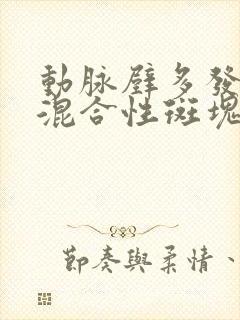 動脉壁多發
混合性斑塊
節奏與柔情、